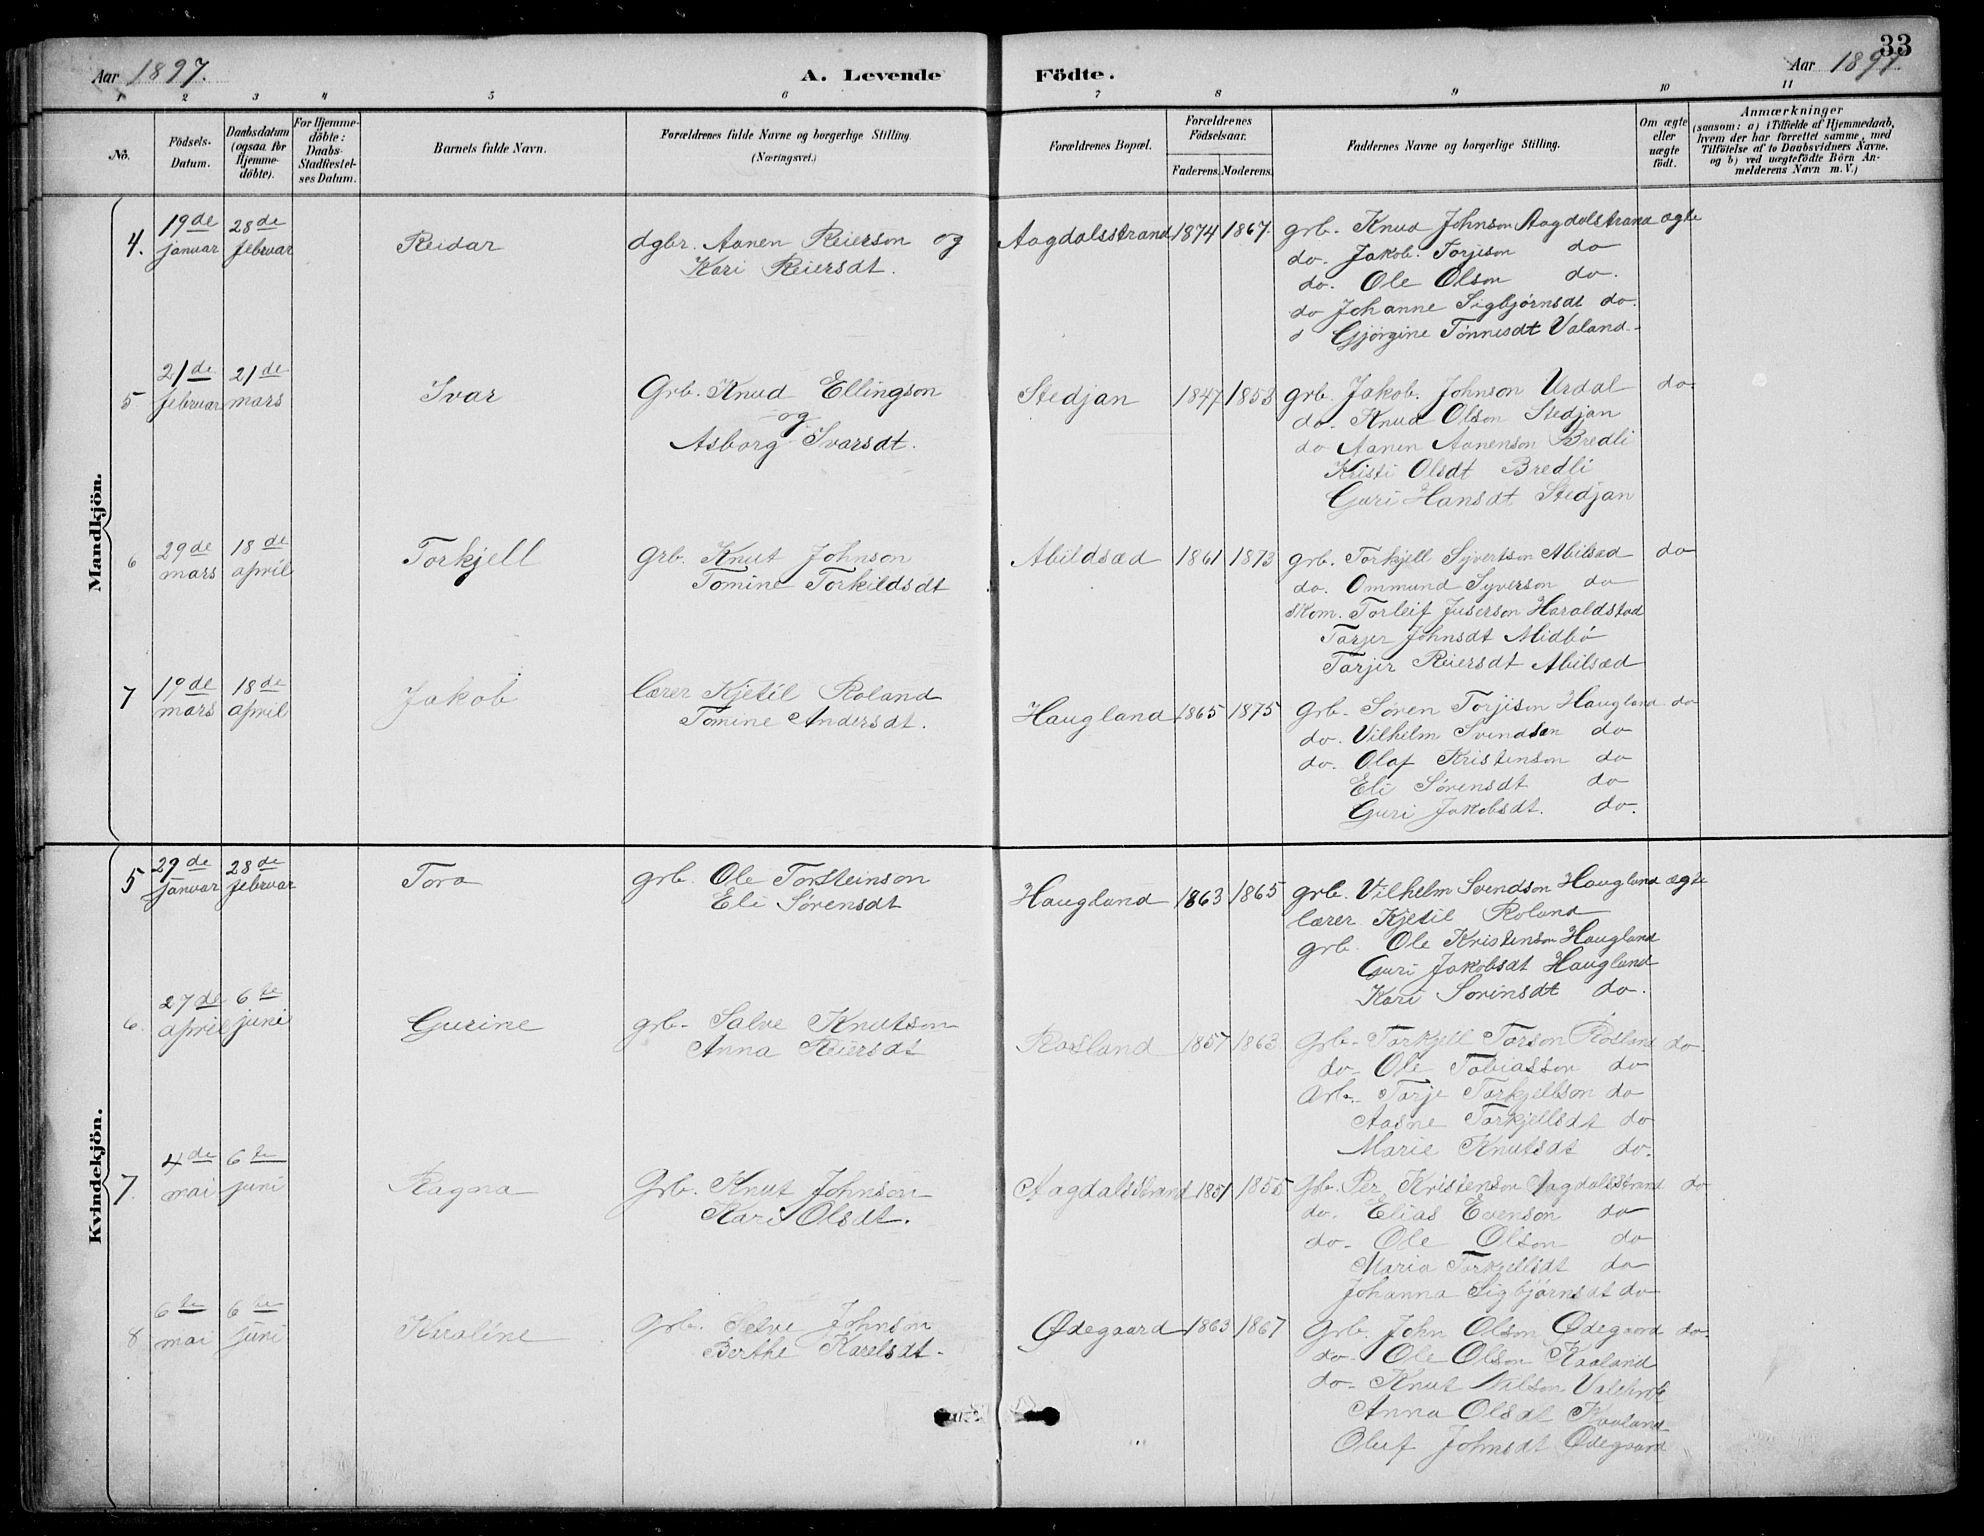 33
Aar 1897.
A. Levende Födte.
Aar 1897
1 2 3 4 5 6 7 8 9 10 11
No.
Födsels-Datum.
Daabsdatum (ogsaa for Hjemme-döbte).
For Hjemme-döbte: Daabs-Stadfæstel-ses Datum.
Barnets fulde Navn.
Forældrenes fulde Navne og borgerlige Stilling. (Næringsvei.)
Forældrenes Bopæl.
Forældrenes Födselsaar.
Faderens. Moderens.
Faddernes Navne og borgerlige Stilling.
Om ægte eller uægte födt.
Anmærkninger
(saasom: a) i Tilfælde af Hjemmedaab, hvem der har forrettet samme, med Tilföielse af to Daabsvidners Navne. og b) ved uægtefödte Börn Anmelderens Navn m. V.)
Mandkjön.
4. 19de januar 28de februar Reidar dgbr. Aanen Reierson og Kari Reiersdt. Aagdalsstrand 1874 1867. grb. Knud Johnson Aagdalstrand ægte
do. Jakob. Torjison do
do. Ole Olson do.
do Johanne Sigbjørnsdt do.
Gjørgine Tønnesdt Valand
5 21de februar 21de mars Ivar Grb. Knud Ellingson og Asborg Ivarsdt. Stedjan 1847 1853 grb. Jakob. Johnson Urdal do
do. Knud Olson Stedjan
do Aanen Aanenson Bredli
Kristi Olsdt Bredli
Guri Hansdt Stedjan
6 29de mars 18de april Torkjell grb. Knut Johnson Tomine Torkildsdt Abildsæd 1861 1873 grb. Torkjell Syvertson Abilsæd do
do. Ommund Syverson do
skom. Torleif Juserson Haraldstad
Tarjer Johnsdt Midbö
Tarjer Reiersdt Abilsæd
7 19de mars 18de april Jakob lærer Kjetil Roland Tomine Andersdt. Haugland 1865 1875 grb. Søren Torjison Haugland do
do. Vilhelm Svendsen do
do. Olaf Kristenson do
Eli Sørensdt do
Guri Jakobsdt. do.
Kvindekjön.
5 29de januar 28de februar Tora grb. Ole Torsteinson Eli Sørensdt Haugland 1863 1865 grb. Vilhelm Svendson Haugland ægte
lærer Kjetil Roland
grb. Ole Kristenson Haugland
Guri Jakobsdt Haugland
Kari Sorinsdt do.
6. 27de april 6te juni Gurine grb. Salve Knutson Anna Reiersdt Rosland 1857 1863 grb. Torkjell Torson Rosland do.
do. Ole Tobiasson do
Arb. Torje Torkjellson do
Aasne Torkjellsdt do
Marie Knutsdt do.
7. 4de mai 6te juni Ragna Grb. Knut Johnson Kari Olsdt. Aagdalsstrand 1851 1855 Grb. Per Kristenson Aagdalsstrand do
do. Elias Evenson do
do. Ole Olson do
Maria Torkjellsdt do
Johanna Sigbjørnsdt do
8 6te mai 6te juni Karoline Grb. Selve Johnson Berthe Karelsdt. Ødegaard 1863 1867 Grb. John Olson Ødegaard do.
do. Ole Olson Kaaland
do. Knut Nilson
Anna Olsdt Kvaland
Oluf Johnsdt Ødegaard